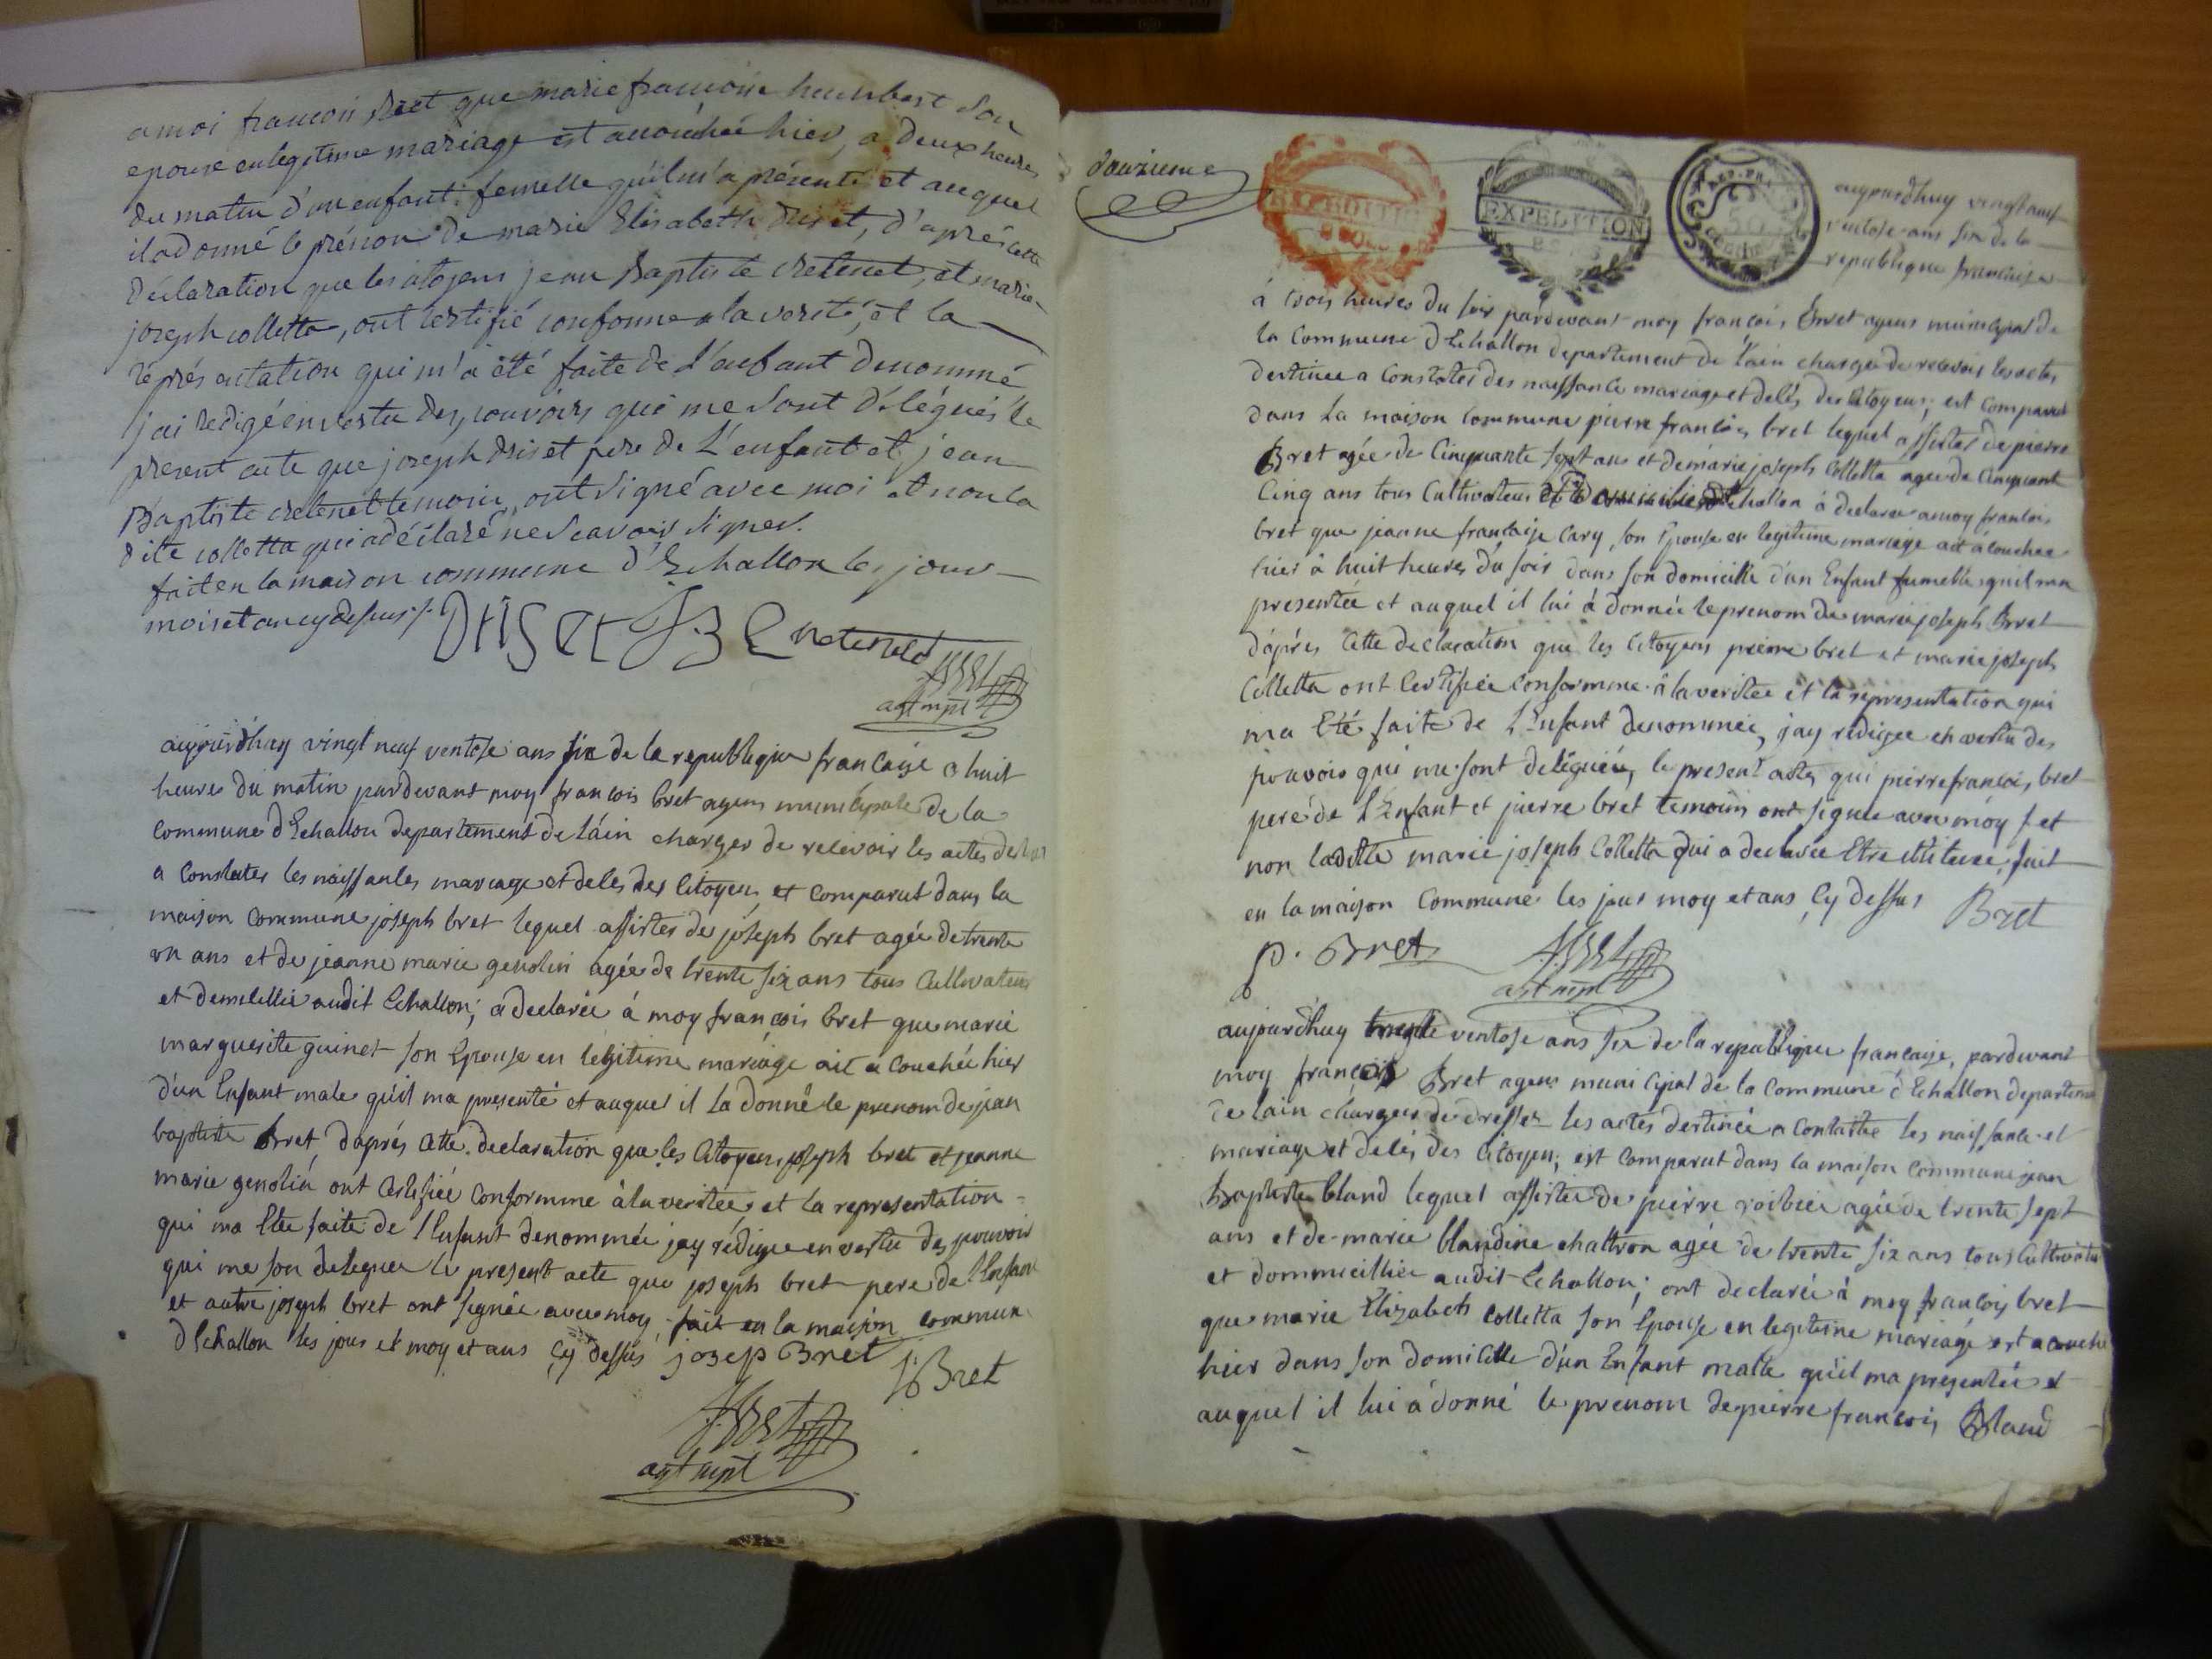 amoi francois bret que marie francoise humbert son
epouse en legitime mariage est accouchée hier, a deux heures
du matin d'un enfant femelle quil m'a présenté et auquel
il a donné le prénom de marie Elisabeth driset, d'aprés cette
déclaration que les citoyens jean Baptiste cretenet, et marie
joseph colletta, ont certifié conforme a la verité, et la
réprésentation qui m'a été faite de l'enfant denommé
j'ai redigé en vertu des pouvoirs qui me sont délégués le
present acte que joseph driset pere de l'enfant et jean
Baptiste cretenet temoin, ont signé avec moi et non la
dite colletta qui a déclaré ne scavoir signer.
fait en la maison commune d'Echallon les jour
mois et an cy dessus
Driset J B Cretenet
f Bret
agt mpl
aujourdhuy vingt neuf ventose ans six de la republique française a huit
heures du matin pardevant moy francois bret agens municipale de la
commune d'Echallon departement de l'ain charger de relevoir les actes
a constater les naissances mariage et delés des citoyens, et comparut dans la
maison commune joseph bret lequel assister de joseph bret agée de trente
un ans et de jeanne marie genolin agée de trente six ans tous cultivateurs
et demicillié audit Echallon; a declarée á moy francois bret que marie
marguerite guinet son Epouse en legitime mariage ait acouchée hier
d'un Enfant male qu'il ma presenté et auquel il la donné le prenom de jean
baptiste Bret, daprés cette declaration que les citoyens joseph bret et jeanne
marie genolin ont certifiée conformme à la veritée et la representation
qui ma Etée faite de l'Enfant denommée jay rédigée en vertu des pouvoir
qui me son deleguee le present acte que joseph bret pere de l'Enfant
et autre joseph bret ont signée avec moy, fait en la maison commun
d'Echallon les jour et moy et ans cy dessus josep Bret
j Bret
f Bret
agt mpl
douzieme
EXPEDITION
EXPEDITION
50
aujourdhuy vingt neuf
ventose ans six de la
republique francaise
á trois heures du soir pardevant moy francois Bret agens municipal de
la commune d'Echallon departement de l'ain charger de recevoir les actes
destinée a constater des naissance mariage et delés des citoyens; est comparut
dans la maison commune pierre francois bret lequel assister de pierre
Bret agée de cinquante sept ans et de marie joseph colletta agée de cinquant
cinq ans tous cultivateurs et Echallon á declarée a moy francois
bret que jeanne française Cary, son Epouse en legitime mariage ait acouchée
hier à huit heures du soir dans son domicille d'un Enfant fumelle qu'il ma
presentée et auquel il lui á donnée le prenom de marie joseph Bret
d'aprés cette declaration que les citoyens pierre bret et marie joseph
Colletta ont certifiée conformme à la veritée et la representation qui
ma Eté faite de l'Enfant denommée, jay redigée en vertu des
pouvoir qui me sont deléguéé, le present acte, qui pierre francois bret
pere de l'Enfant et pierre bret temoins ont signée avec moy f et
non laditte marie joseph Colletta qui a declarée Etre illiteree, fait
en la maison commune les jour moy et ans cy dessus Bret
p. Bret f Bret
agt mpl
aujourdhuy trente ventose ans six de la republique francaise, pardevant
moy francois Bret agens municipal de la commune d'Echallon departem
de lain charger de dresser les actes destinée a constatée les naissance et
mariage et delés des citoyens; est comparut dans la maison commune jean
Baptiste bland lequel assister de pierre agée de trente sept
ans et de marie blandine chattron agée de trente six ans tous cultivateu
et dommicillié audit Echallon; ont declarée á moy francois bret
que marie Elizabeth colletta son Epouse en legitime mariage est acouche
hier dans son domicille d'un Enfant malle qu'il ma presentée et
auquel il lui á donné le prenom de pierre francois Bland